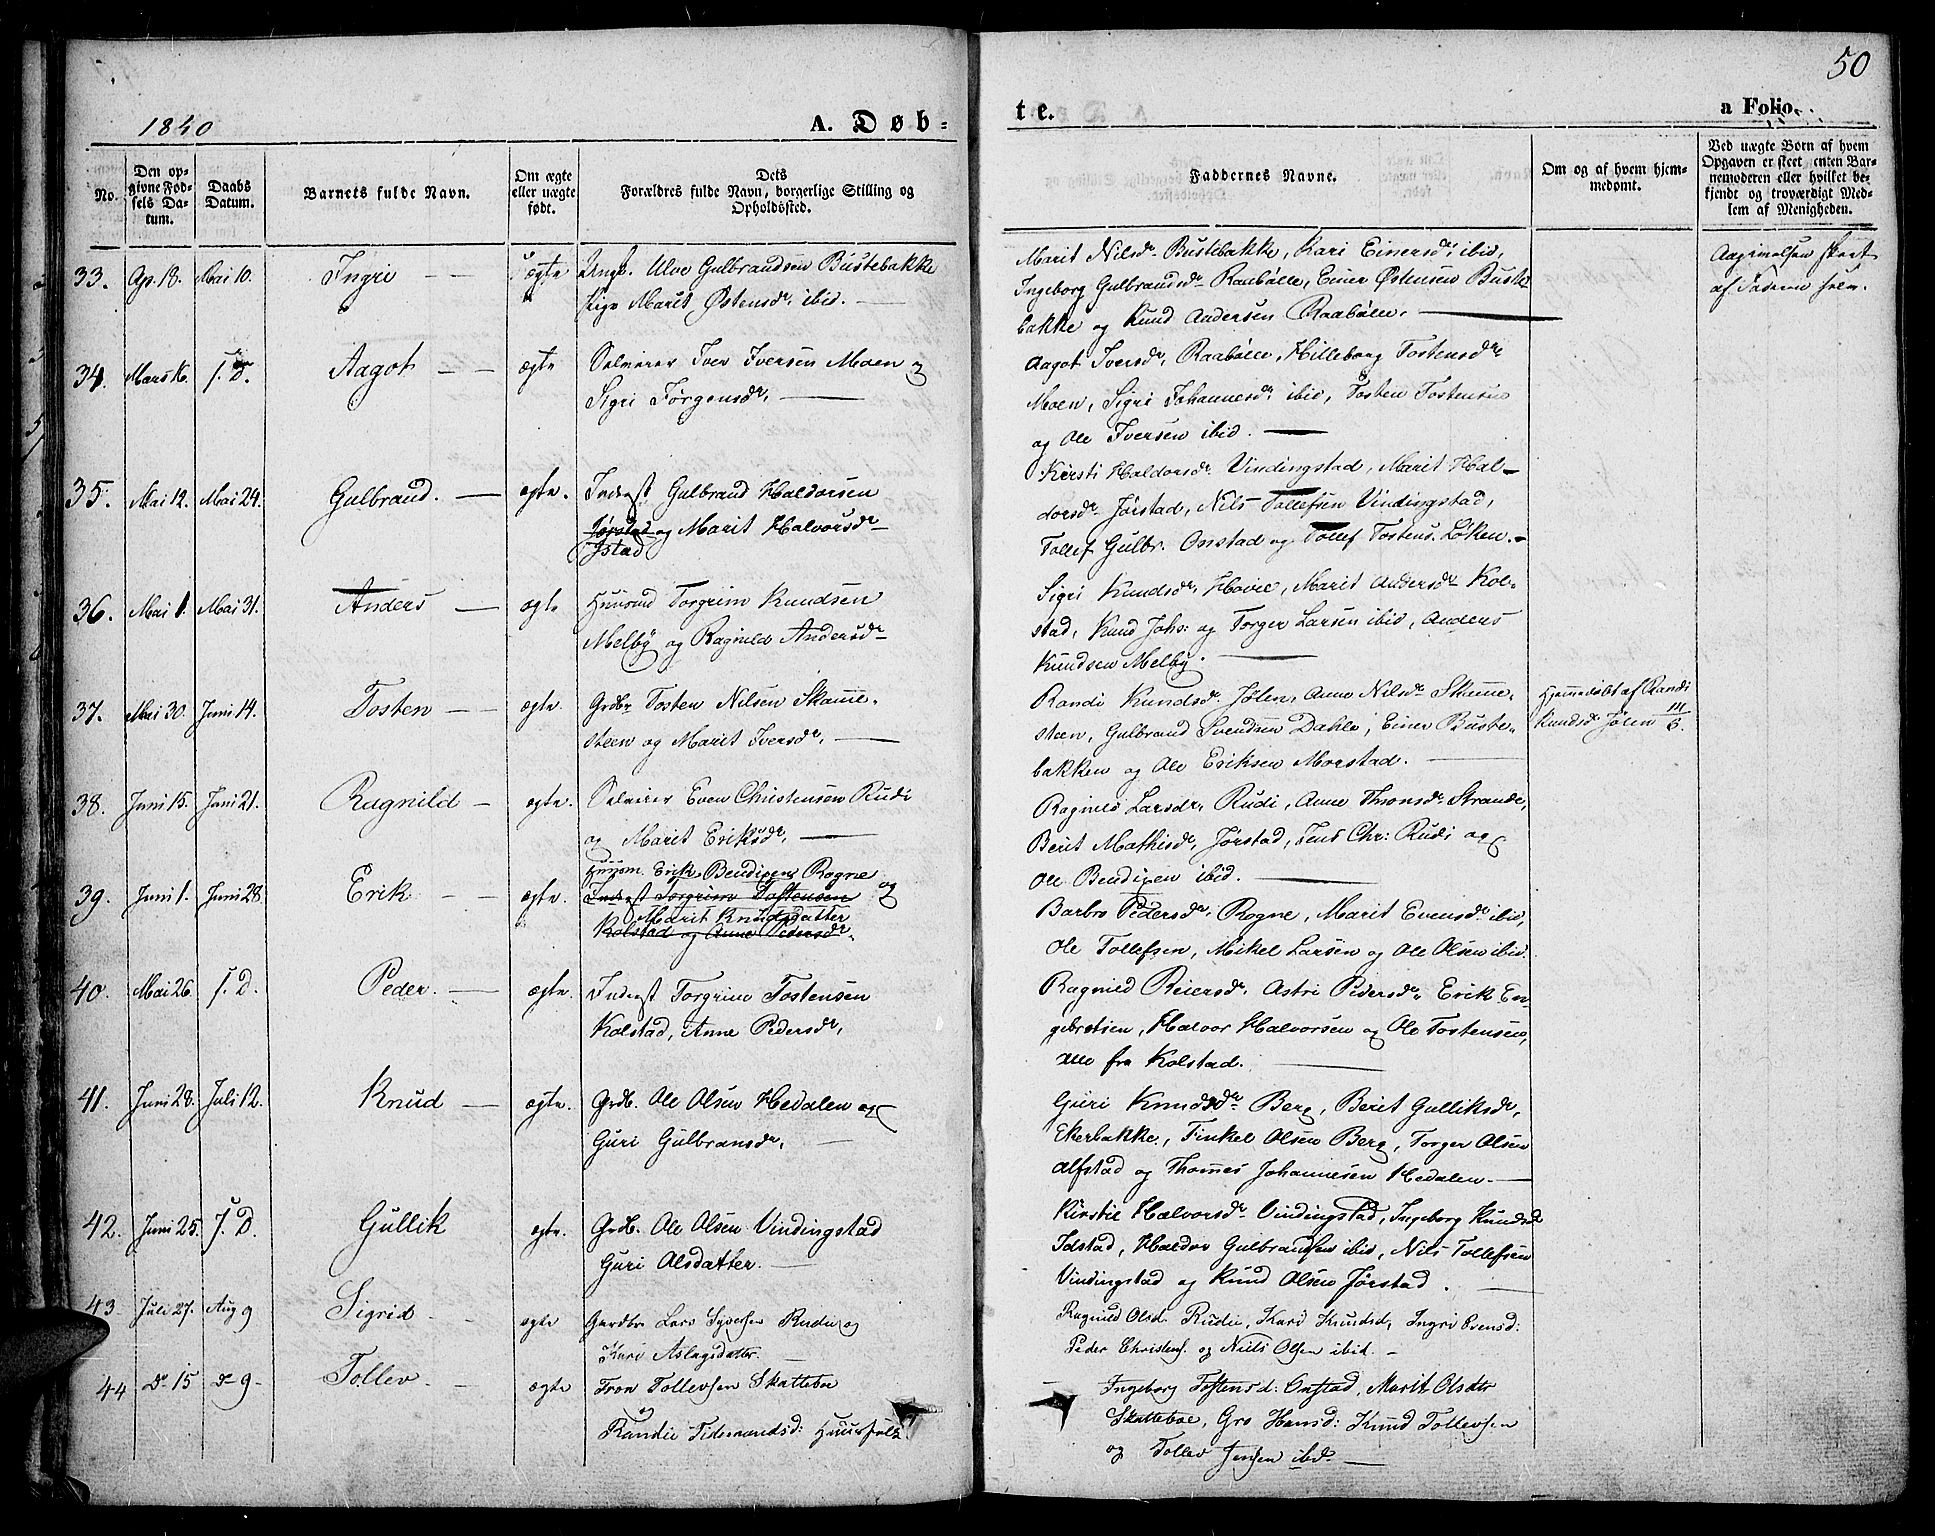 50
1840
A. Døb-
te.
a Folio
No.
Den op-
givne Fød-
sels Da-
tum.
Daabs
Datum.
Barnets fulde Navn.
Om ægte
eller uægte
født.
Dets
Forældres fulde Navn, borgerlige Stilling og
Opholdssted.
Faddernes Navne.
Om og af hvem hjem-
medømt.
Ved uægte Børn af hvem
Opgaven er skeet enten Bar-
nemoderen eller hvilket be-
kjendt og troværdigt Med-
lem af Menigheden.
33. Ap. 18. Mai 10. Ingri uægte Ungk. Ulve Gulbrandsen Bustebakke
Pige Marit Østensdr. ibid.
Marit Nilsdr. Bustebakke, Kari Einersdr. ibid,
Ingeborg Gulbrandsdr. Raabølle, Einer Østensen Buste
bakke og Knud Andersen Raabøle.
af Faderen selv.
34. Mars 16. s. D. Aagot ægte Selveier Iver Iversen Moen og
Sigri Jørgensdr.
Aagot Iversdr. Raabølle, Hilleborg Tostensdr.
Moen, Sigri Johannesdr. ibid, Tosten Tostensen
og Ole Iversen ibid.
35. Mai 12. Mai 24. Gulbrand. ægte. Inderst Gulbrand Haldorsen
Jørstad og Marit Halvorsdr.
Istad
Kersti Haldorsdr. Vindingstad, Marit Hal-
dorsdr. Jørstad, Nils Tollefsen Vindingstad,
Tollef Gulbr. Onstad og Tollef Tostens. Løken.
36. Mai 1. Mai 31. Anders ægte Huusmd Torgrim Knudsen
Melby og Ragnild Andersdr.
Sigri Knudsdr. Hovie, Marit Andersdr. Kol-
stad, Knud Johs: og Torger Larsen ibid, Anders
Knudsen Melby.
37. Mai 30. Juni 14. Tosten ægte. Grdbr Tosten Nilsen Skamme-
steen og Marit Iversdr.
Randi Knudsdr. Jølen, Anne Nilsdr. Skamme-
steen, Gulbrand Svendsen Dahle, Einer Buste-
bakken og Ole Eriksen Morstad.
Hjemmedøbt af Randi
Knudsdr. Jølen
38. Juni 15. Juni 21. Ragnild ægte. Selveier Even Christensen Rudi
og Marit Eriksdr.
Ragnild Larsdr. Rudi, Anne Thomsdr. Strande,
Berit Mathisdr. Jørstad, Jens Chr: Rudi og
Ole Bendixen ibid.
39. Juni 1. Juni 28. Erik ægte. Huusm. Erik Bendixens Rogne og
Inderst Torgrim Tostensen
Marit Knudsdatter
Kolstad og Anne Pedersdr.
Barbro Pedersdr. Rogne, Marit Evensdr. ibid,
Ole Tollefsen, Mikel Larsen og Ole Olsen ibid.
40. Mai 26. s. D. Peder. ægte. Inderst Torgrim Tostensen
Kolstad, Anne Pedersdr.
Ragnild Reiersdr. Astri Pedersdr. Erik En
gebretsen, Halvor Halvorsen og Ole Tostensen,
alle fra Kolstad.
41. Juni 28. Juli 12. Knud ægte. Grdb. Ole Olsen Hedalen og
Guri Gulbransdr.
Guri Knudsdr. Berg, Berit Gulliksdr.
Ekerbakke, Finkel Olsen Berg, Torger Olsen
Alfstad og Thomes Johannesen Hedalen.
42. Juni 25. s. D. Gullik ægte. Grdb. Ole Olsen Vindingstad
Guri Olsdatter.
Kirstie Halvorsdr. Vindingstad, Ingeborg Knudsd
Idstad, Haldor Gulbrandsen ibid, Nils Tollefsen
Vindingstad og Knud Olsen Jørstad.
43. Juli 27. Aug 9 Sigrid ægte Gaardbr Lars Syversen Rudi og
Kari Aslagsdatter.
Ragnild Olsd. Rudie, Kari Knudsd, Ingri Evensd:
Peder Christens. og Niels Olsen ibid.
44 Do 15 Do 9 Tollev ægte Tron Tollevsen Skattebøe
og
Randie Tidemandsd: Huusfolk
Ingeborg Tostensd: Onstad, Marit Olsdtr
Skattebøe, Gro Hansd: Knud Tollevsen
og Tollev Jensen ibid.